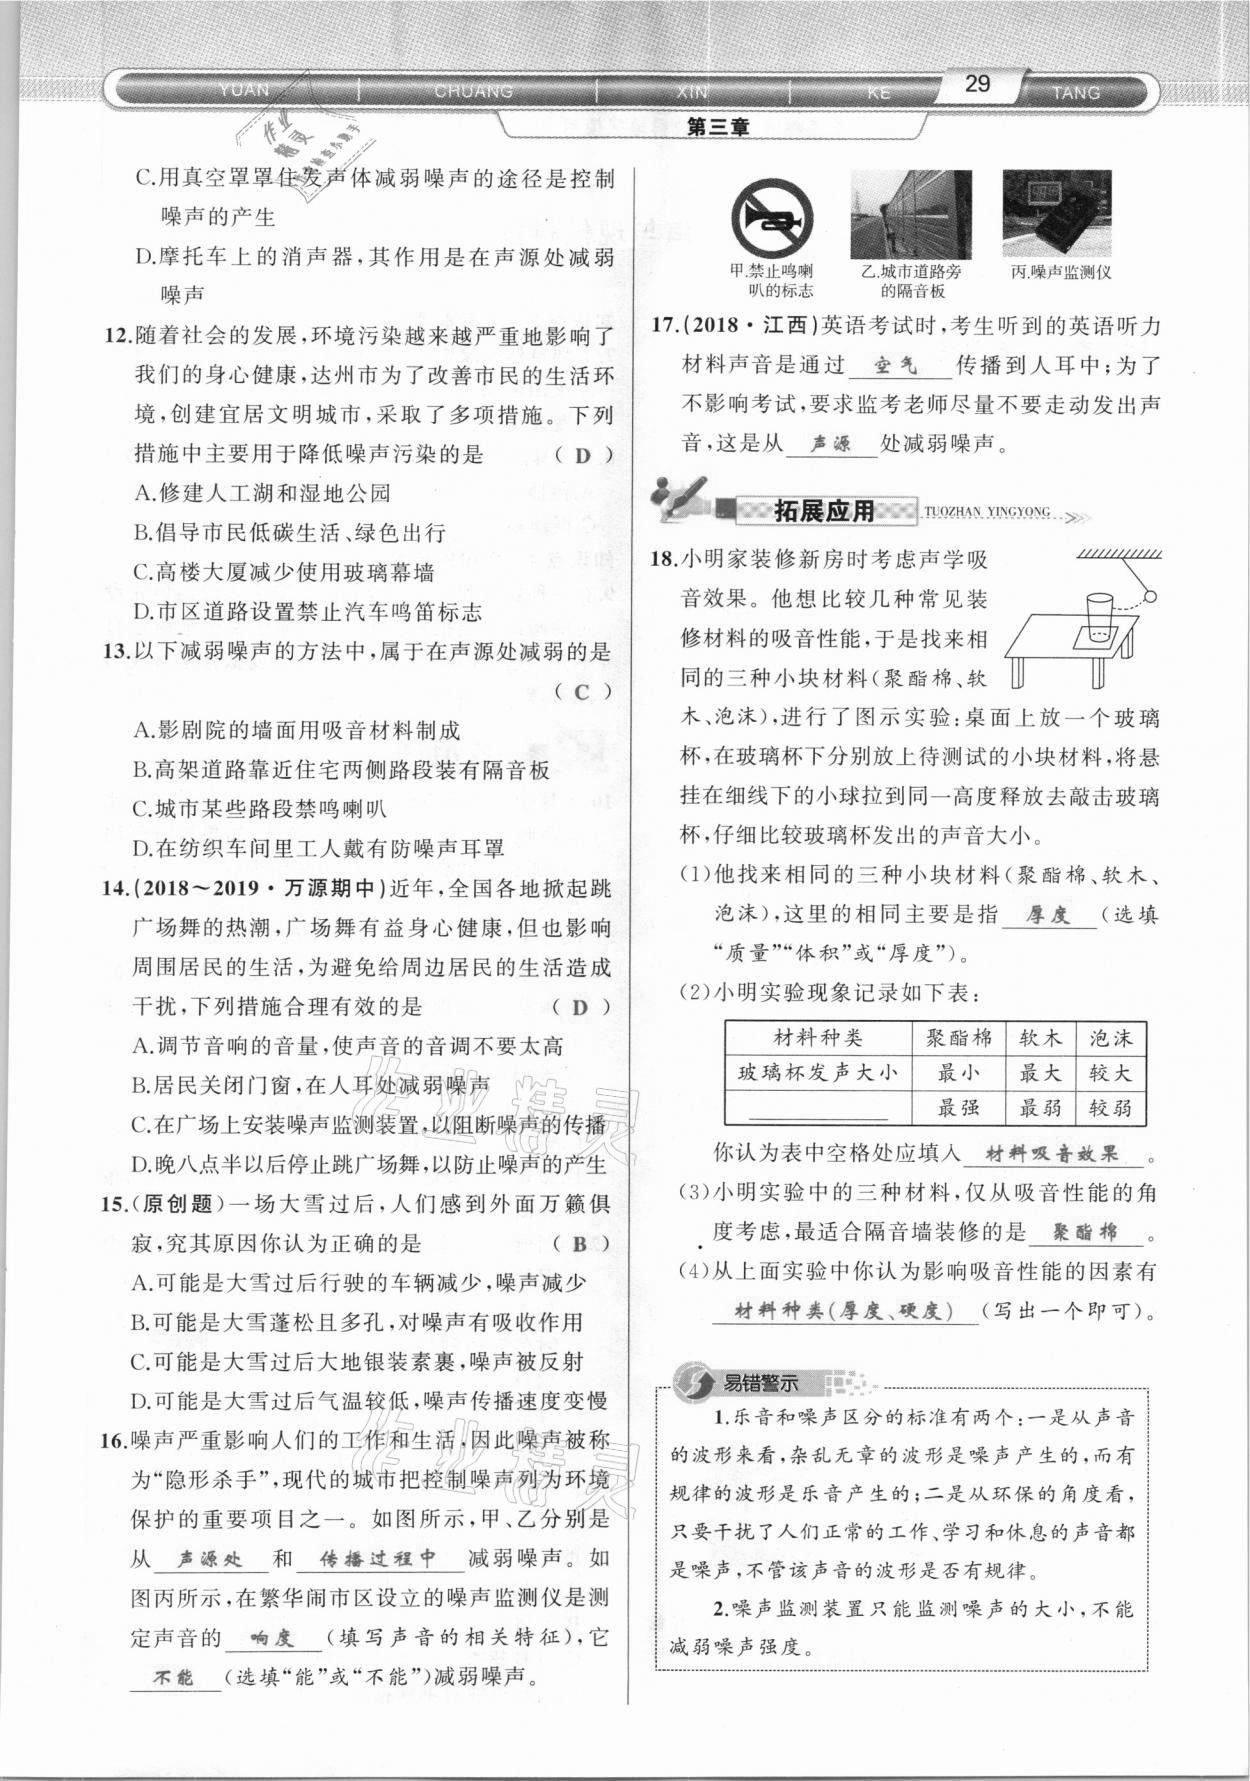 YUAN CHUANG XIN KE 29 TANG
第三章
C.用真空罩罩住发声体减弱噪声的途径是控制
噪声的产生
D.摩托车上的消声器,其作用是在声源处减弱
噪声
12.随着社会的发展,环境污染越来越严重地影响了
我们的身心健康,达州市为了改善市民的生活环
境,创建宜居文明城市,采取了多项措施。下列
措施中主要用于降低噪声污染的是 ( D )
A.修建人工湖和湿地公园
B.倡导市民低碳生活、绿色出行
C.高楼大厦减少使用玻璃幕墙
D.市区道路设置禁止汽车鸣笛标志
13.以下减弱噪声的方法中,属于在声源处减弱的是
( C )
A.影剧院的墙面用吸音材料制成
B.高架道路靠近住宅两侧路段装有隔音板
C.城市某些路段禁鸣喇叭
D.在纺织车间里工人戴有防噪声耳罩
14.(2018～2019·万源期中)近年,全国各地掀起跳
广场舞的热潮,广场舞有益身心健康,但也影响
周围居民的生活,为避免给周边居民的生活造成
干扰,下列措施合理有效的是 ( D )
A.调节音响的音量,使声音的音调不要太高
B.居民关闭门窗,在人耳处减弱噪声
C.在广场上安装噪声监测装置,以阻断噪声的传播
D.晚八点半以后停止跳广场舞,以防止噪声的产生
15.(原创题)一场大雪过后,人们感到外面万籁俱
寂,究其原因你认为正确的是 ( B )
A.可能是大雪过后行驶的车辆减少,噪声减少
B.可能是大雪蓬松且多孔,对噪声有吸收作用
C.可能是大雪过后大地银装素裹,噪声被反射
D.可能是大雪过后气温较低,噪声传播速度变慢
16.噪声严重影响人们的工作和生活,因此噪声被称
为“隐形杀手”,现代的城市把控制噪声列为环境
保护的重要项目之一。如图所示,甲、乙分别是
从 声源处 和 传播过程中 减弱噪声。如
图丙所示,在繁华闹市区设立的噪声监测仪是测
定声音的 响度 (填写声音的相关特征),它
不能 (选填“能”或“不能”)减弱噪声。
甲.禁止鸣喇
叭的标志
乙.城市道路旁
的隔音板
丙.噪声监测仪
17.(2018·江西)英语考试时,考生听到的英语听力
材料声音是通过 空气 传播到人耳中;为了
不影响考试,要求监考老师尽量不要走动发出声
音,这是从 声源 处减弱噪声。
拓展应用 TUOZHAN YINGYONG
18.小明家装修新房时考虑声学吸
音效果。他想比较几种常见装
修材料的吸音性能,于是找来相
同的三种小块材料(聚酯棉、软
木、泡沫),进行了图示实验:桌面上放一个玻璃
杯,在玻璃杯下分别放上待测试的小块材料,将悬
挂在细线下的小球拉到同一高度释放去敲击玻璃
杯,仔细比较玻璃杯发出的声音大小。
(1)他找来相同的三种小块材料(聚酯棉、软木、
泡沫),这里的相同主要是指 厚度 (选填
“质量”“体积”或“厚度”)。
(2)小明实验现象记录如下表:
材料种类 聚酯棉 软木 泡沫
玻璃杯发声大小 最小 最大 较大
最强 最弱 较弱
你认为表中空格处应填入 材料吸音效果 。
(3)小明实验中的三种材料,仅从吸音性能的角
度考虑,最适合隔音墙装修的是 聚酯棉 。
(4)从上面实验中你认为影响吸音性能的因素有
材料种类(厚度、硬度) (写出一个即可)。
易错警示
1.乐音和噪声区分的标准有两个:一是从声音
的波形来看,杂乱无章的波形是噪声产生的,而有
规律的波形是乐音产生的;二是从环保的角度看,
只要干扰了人们正常的工作、学习和休息的声音都
是噪声,不管该声音的波形是否有规律。
2.噪声监测装置只能监测噪声的大小,不能
减弱噪声强度。
作业精灵
作业精灵
作业
精灵